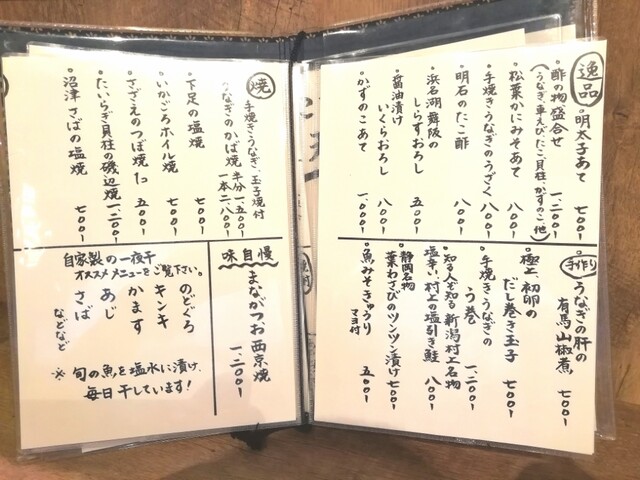 逸品
・明太子あて 七〇〇ー
・酢の物盛合せ 一、二〇〇ー
(うなぎ、車えび、たこ、貝柱、かずのこ、他)
・松葉かにみそあて 八〇〇ー
・手焼きうなぎのうざく 八〇〇ー
・明石のたこ酢 八〇〇ー
・浜名湖舞阪の
しらすおろし 五〇〇ー
・醤油漬け
いくらおろし 八〇〇ー
・かずのこあて 一、〇〇〇ー
手作り
・うなぎの肝の
有馬山椒煮 七〇〇ー
・極上、初卵の
だし巻き玉子 七〇〇ー
・手焼きうなぎの
う巻 一、二〇〇ー
・知る人ぞ知る 新潟村上名物
塩辛い、村上の塩引き鮭 八〇〇ー
・静岡名物
葉わさびのツンツン漬け 七〇〇ー
・魚みそきゅうり
マヨ付 五〇〇ー
焼
・手焼きうなぎ、玉子焼付
うなぎのかば焼 半分 一、五〇〇ー
一本 二、八〇〇ー
・下足の塩焼 七〇〇ー
・いかごろホイル焼 七〇〇ー
・さざえのつぼ焼 五〇〇ー
・たいらぎ貝柱の磯辺焼 一、二〇〇ー
・沼津 さばの塩焼 七〇〇ー
味自慢
まながつお西京焼
一、二〇〇ー
自家製の一夜干
オススメメニューをご覧下さい。
のどぐろ
キンキ
かます
あじ
さば
などなど
※ 旬の魚を塩水に漬け、
毎日干しています!